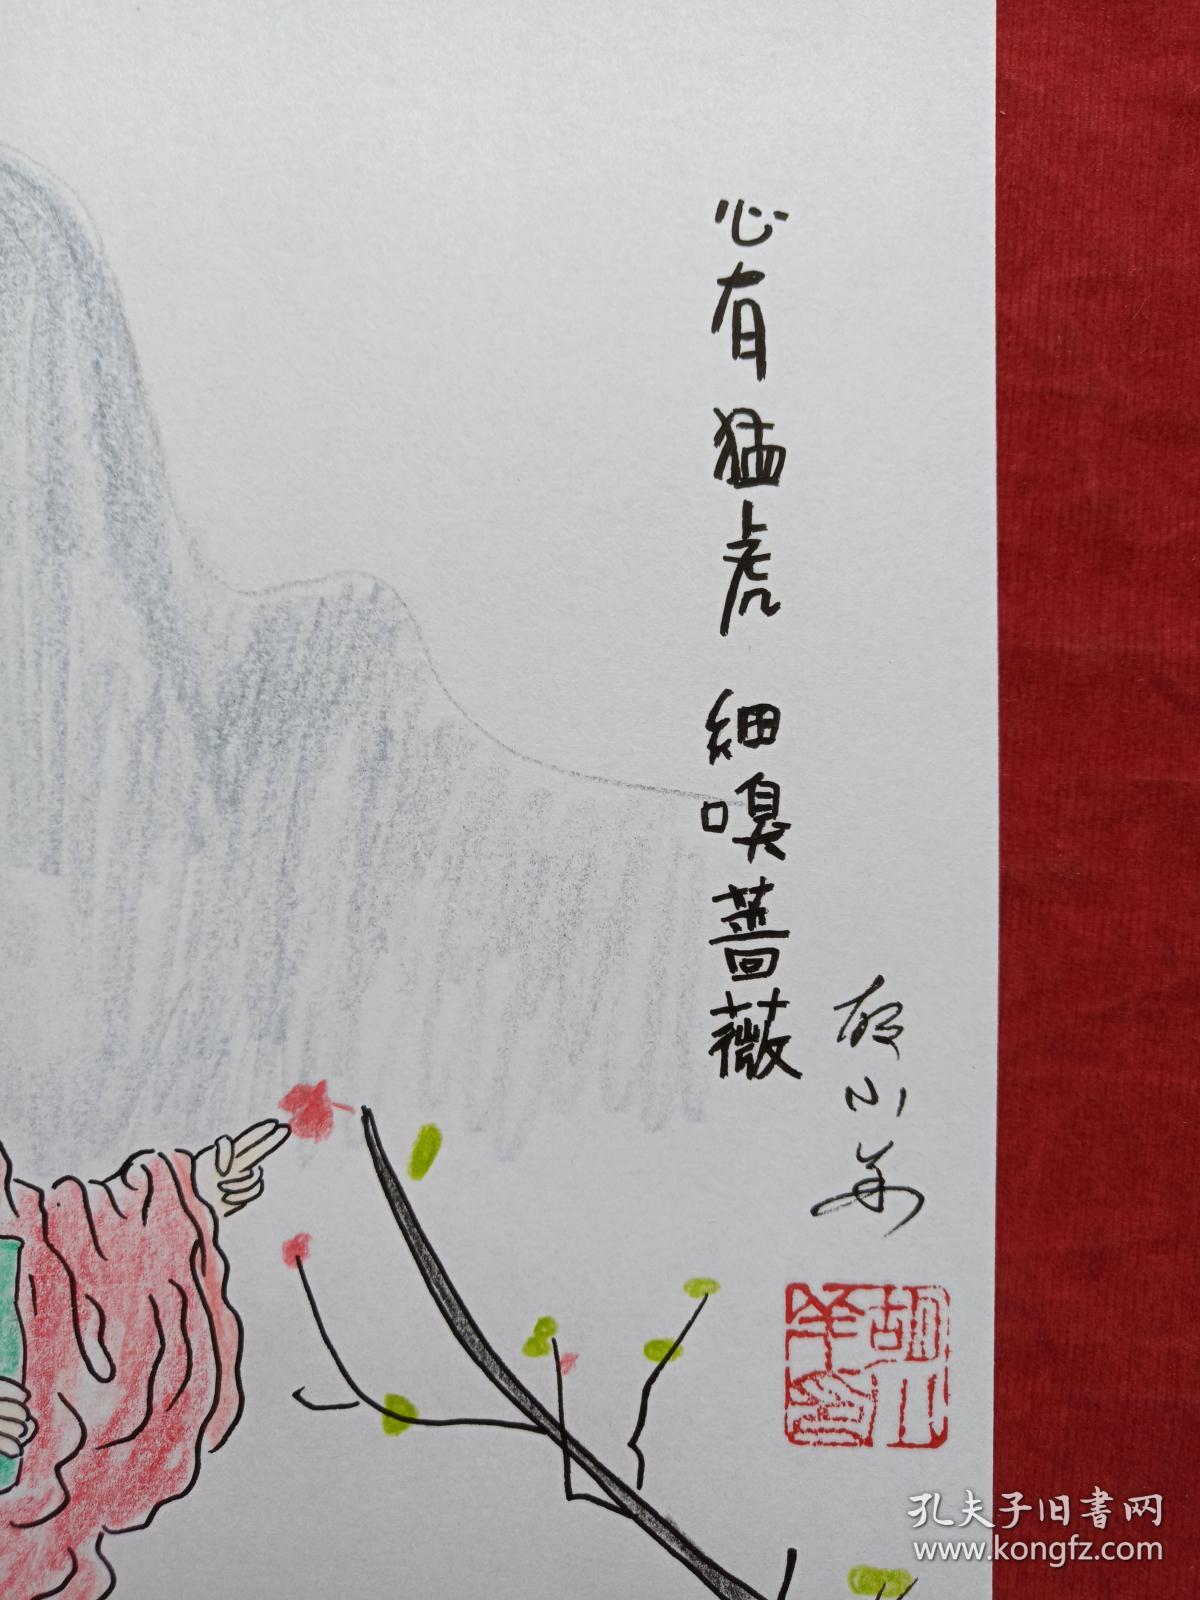 心有猛虎 细嗅蔷薇
胡小羊
胡小羊印
孔夫子旧书网
www.kongfz.com